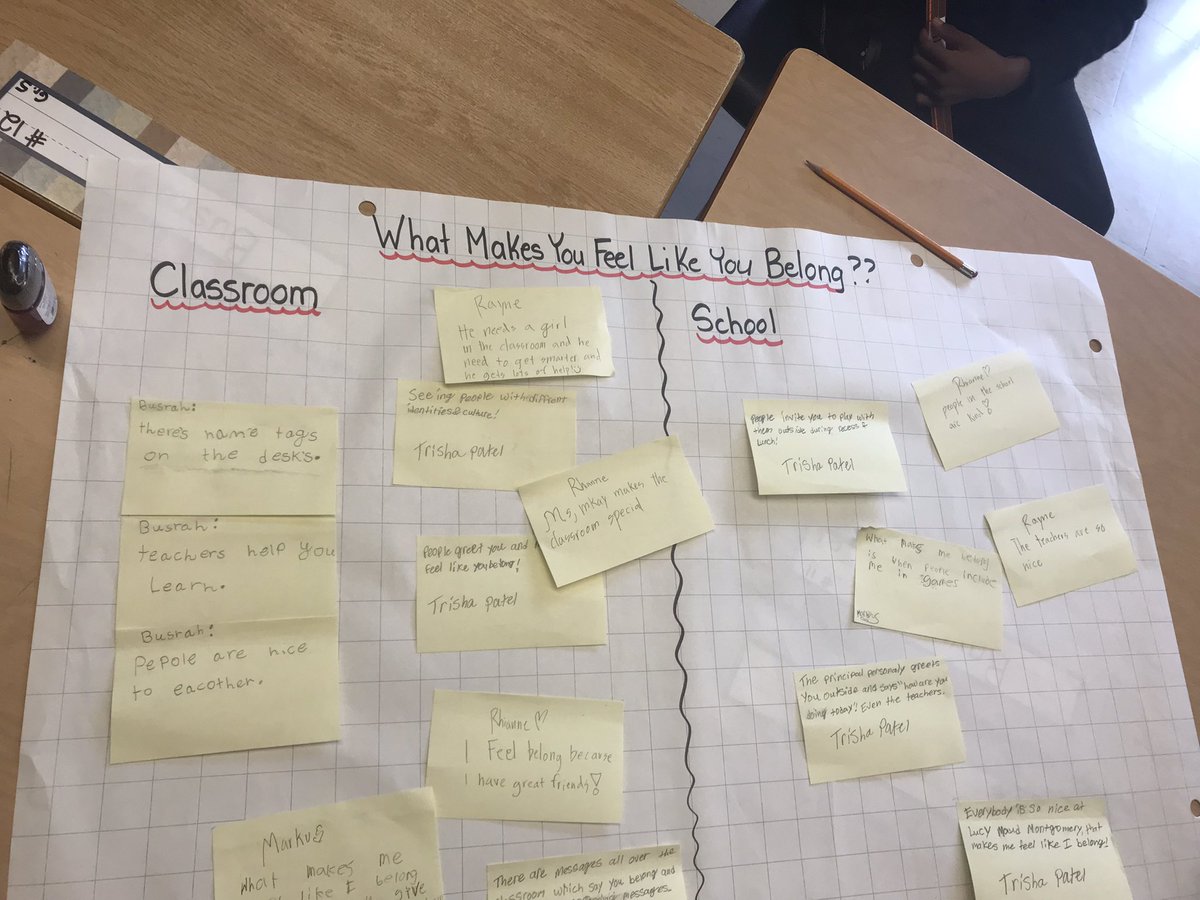 #12
Gr.5
What Makes You Feel Like You Belong??
Classroom
Rayne
He needs a girl
in the classroom and he
need to get smarter and
he gets lots of help!
Seeing People with different
identities & culture!
Trisha Patel
Busrah:
there's name tags
on the desks.
Rhianne
Ms, mkay makes the
classroom special
Busrah:
teachers help you
Learn.
People greet you and
Feel like you belong!
Trisha Patel
Busrah:
Pepole are nice
to eacother.
Rhianne
I Feel belong because
I have great friends!
Markus
What makes me
like I belong
give
There are messages all over the
classroom which say you belong and
messages.
School
Rhianne
people in the school
are kind!
People invite you to play with
them outside during recess &
Lunch!
Trisha Patel
Rayne
The teachers are so
nice
What makes me belong
is when people include
me in games
Markus
The principal personaly greets
you outside and says "how are you
doing today"! Even the teachers.
Trisha Patel
Everybody is so nice at
Lucy Maud Montgomery, that
makes me feel like I belong!
Trisha Patel